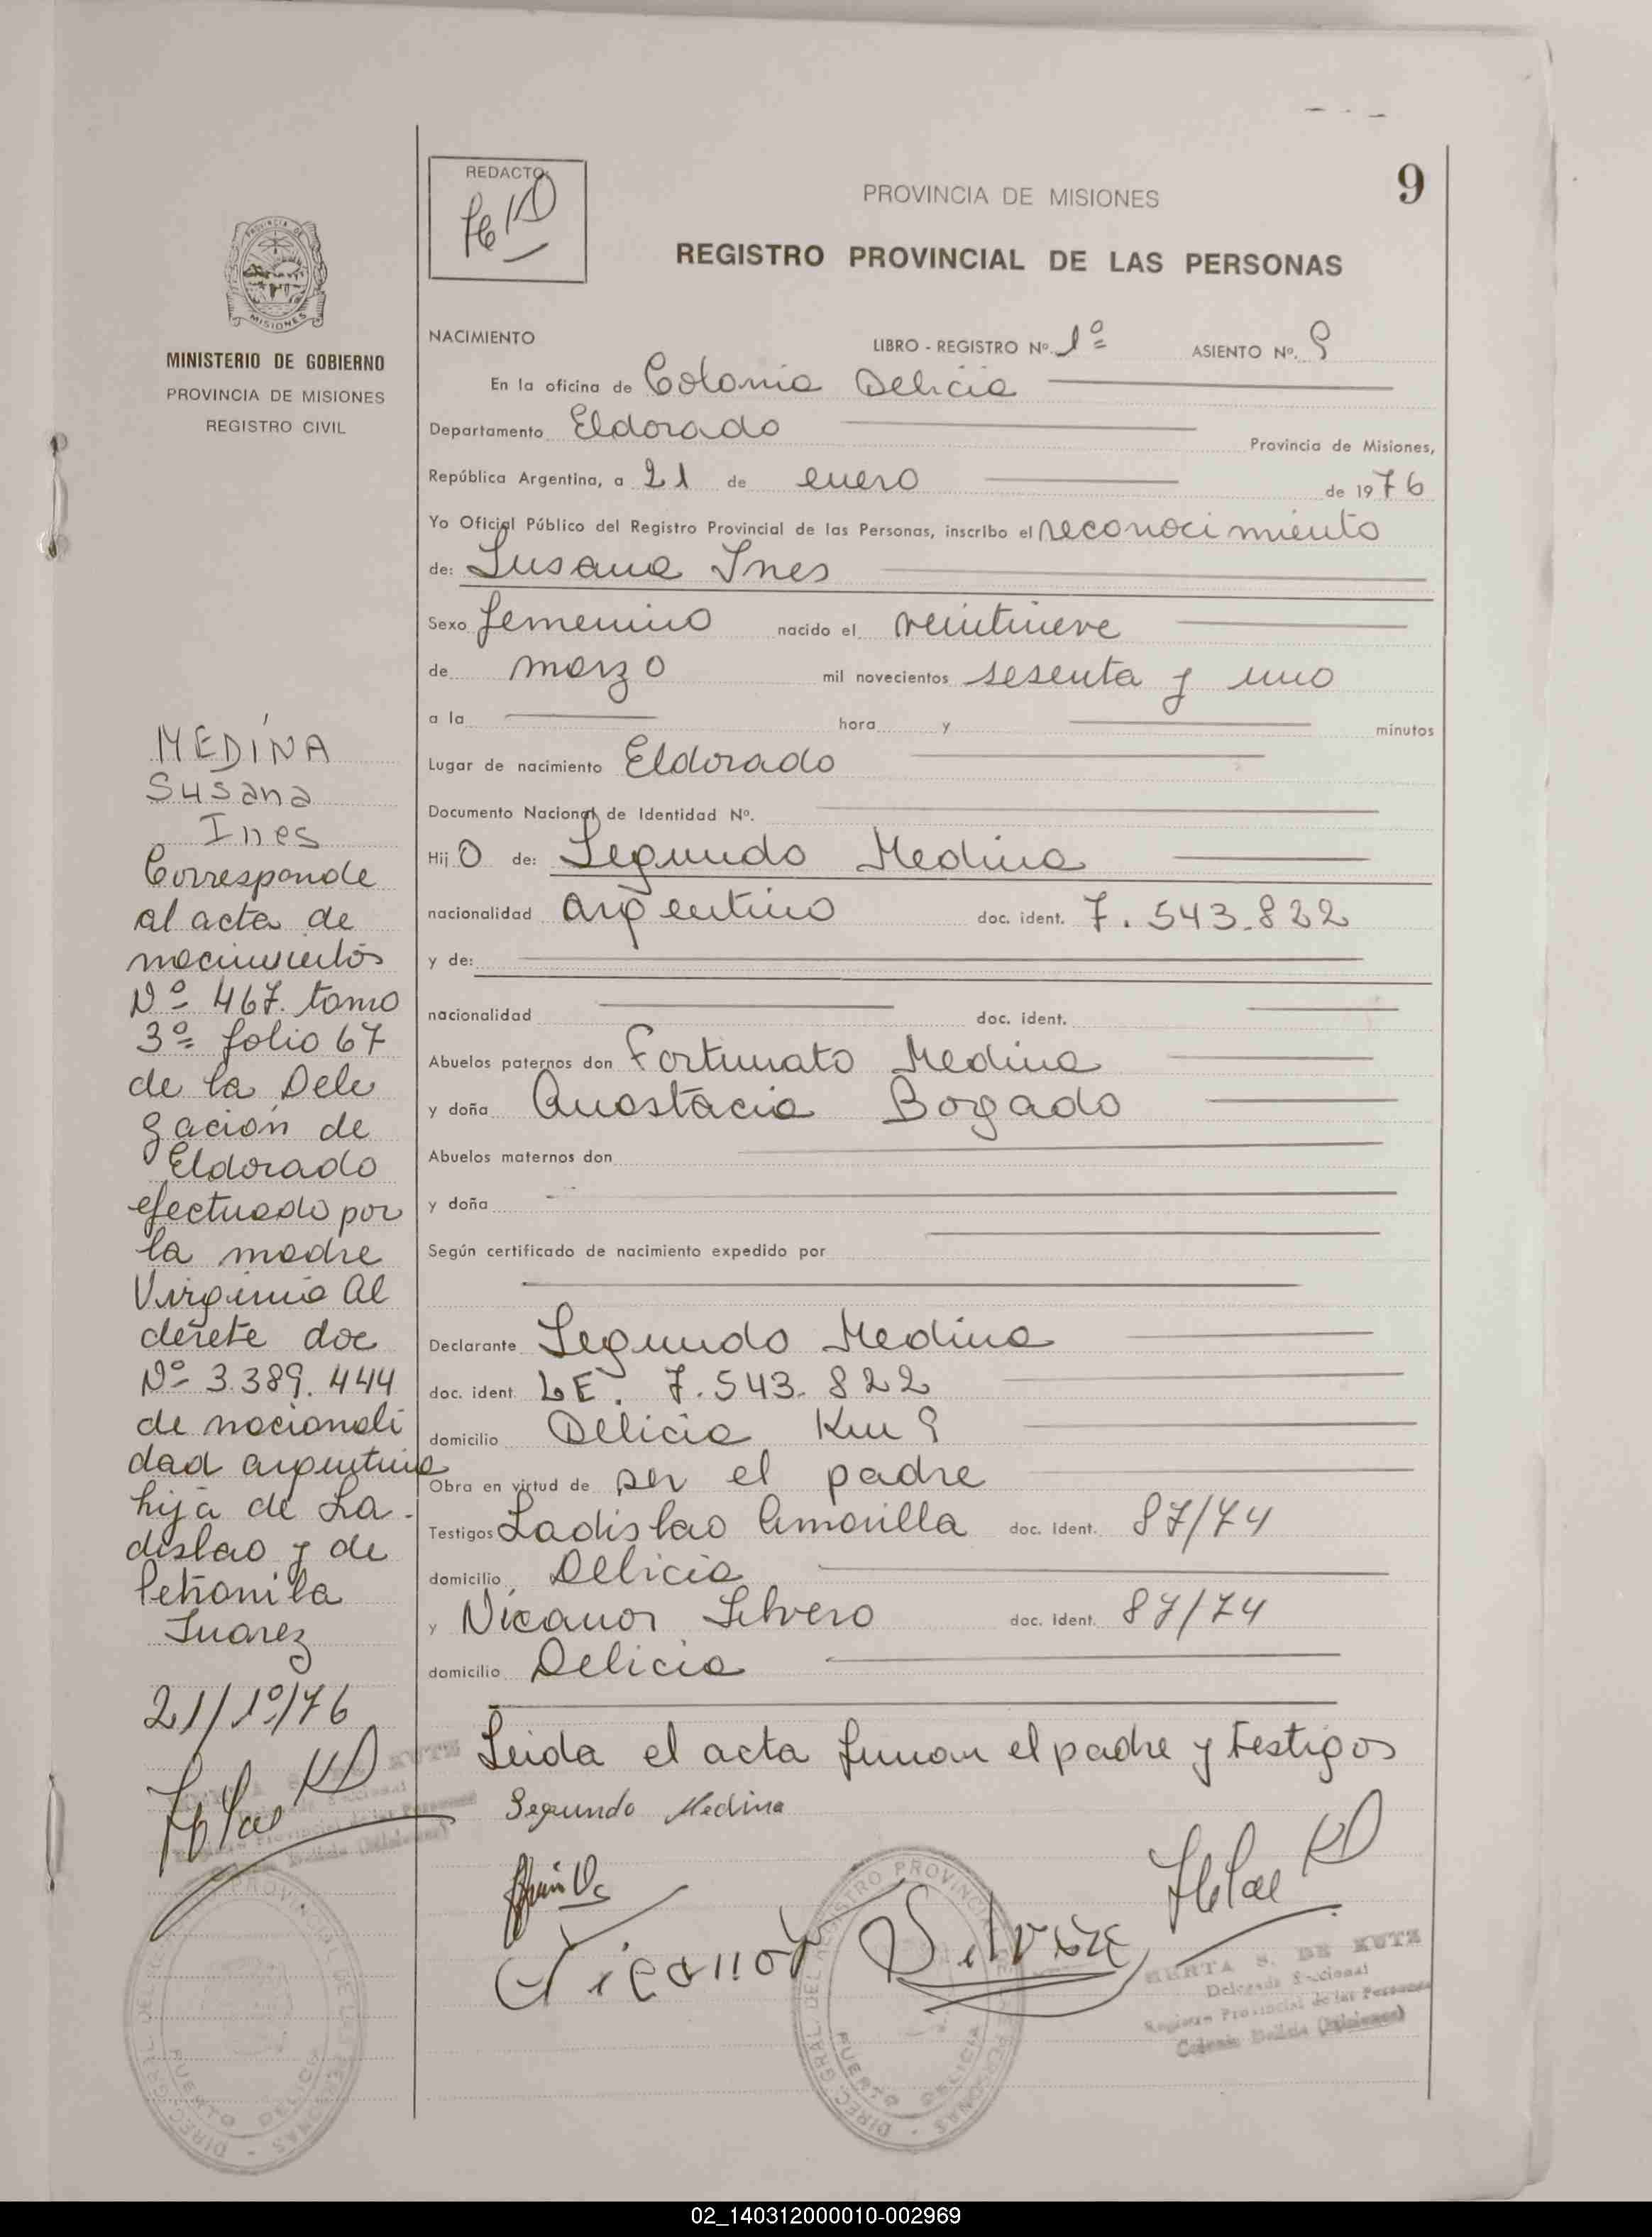 9
REDACTO:
PROVINCIA DE MISIONES
REGISTRO PROVINCIAL DE LAS PERSONAS
MISIONES
MINISTERIO DE GOBIERNO
PROVINCIA DE MISIONES
REGISTRO CIVIL
NACIMIENTO LIBRO - REGISTRO Nº. 1º ASIENTO Nº. 9
En la oficina de Colonia Delicia
Departamento Eldorado Provincia de Misiones,
República Argentina, a 21 de enero de 1976
Yo Oficial Público del Registro Provincial de las Personas, inscribo el reconocimiento
de: Susana Ines
Sexo femenino nacido el veintinueve
de marzo mil novecientos sesenta y uno
a la hora y minutos
Lugar de nacimiento Eldorado
Documento Nacional de Identidad Nº.
Hij O de: Segundo Medina
nacionalidad argentino doc. ident. 7.543.822
y de:
nacionalidad doc. ident.
Abuelos paternos don Fortunato Medina
y doña Anastacia Bogado
Abuelos maternos don
y doña
Según certificado de nacimiento expedido por
Declarante Segundo Medina
doc. ident. LE. 7.543.822
domicilio Delicia Km 9
Obra en virtud de ser el padre
Testigos Ladislao Amarilla doc. Ident. 87/74
domicilio Delicia
y Nicanor Silvero doc. Ident. 87/74
domicilio Delicia
Leida el acta firman el padre y testigos
Segundo Medina
Nicanor Silvero
MEDINA
Susana
Ines
Corresponde
al acta de
nacimientos
Nº 467. tomo
3º folio 67
de la Dele
gación de
Eldorado
efectuado por
la madre
Virginia Al
derete doc
Nº 3.389.444
de nacionali
dad argentina
hija de La-
dislao y de
Petronila
Juarez
21/1º/76
DIREC. GRAL. DEL REGISTRO PROVINCIAL DE LAS PERSONAS
PUERTO DELICIA
DIREC. GRAL. DEL REGISTRO PROVINCIAL DE LAS PERSONAS
PUERTO DELICIA
S. DE KUTZ
Delegada Seccional
Registro Provincial de las Personas
Colonia Delicia (Misiones)
02_140312000010-002969